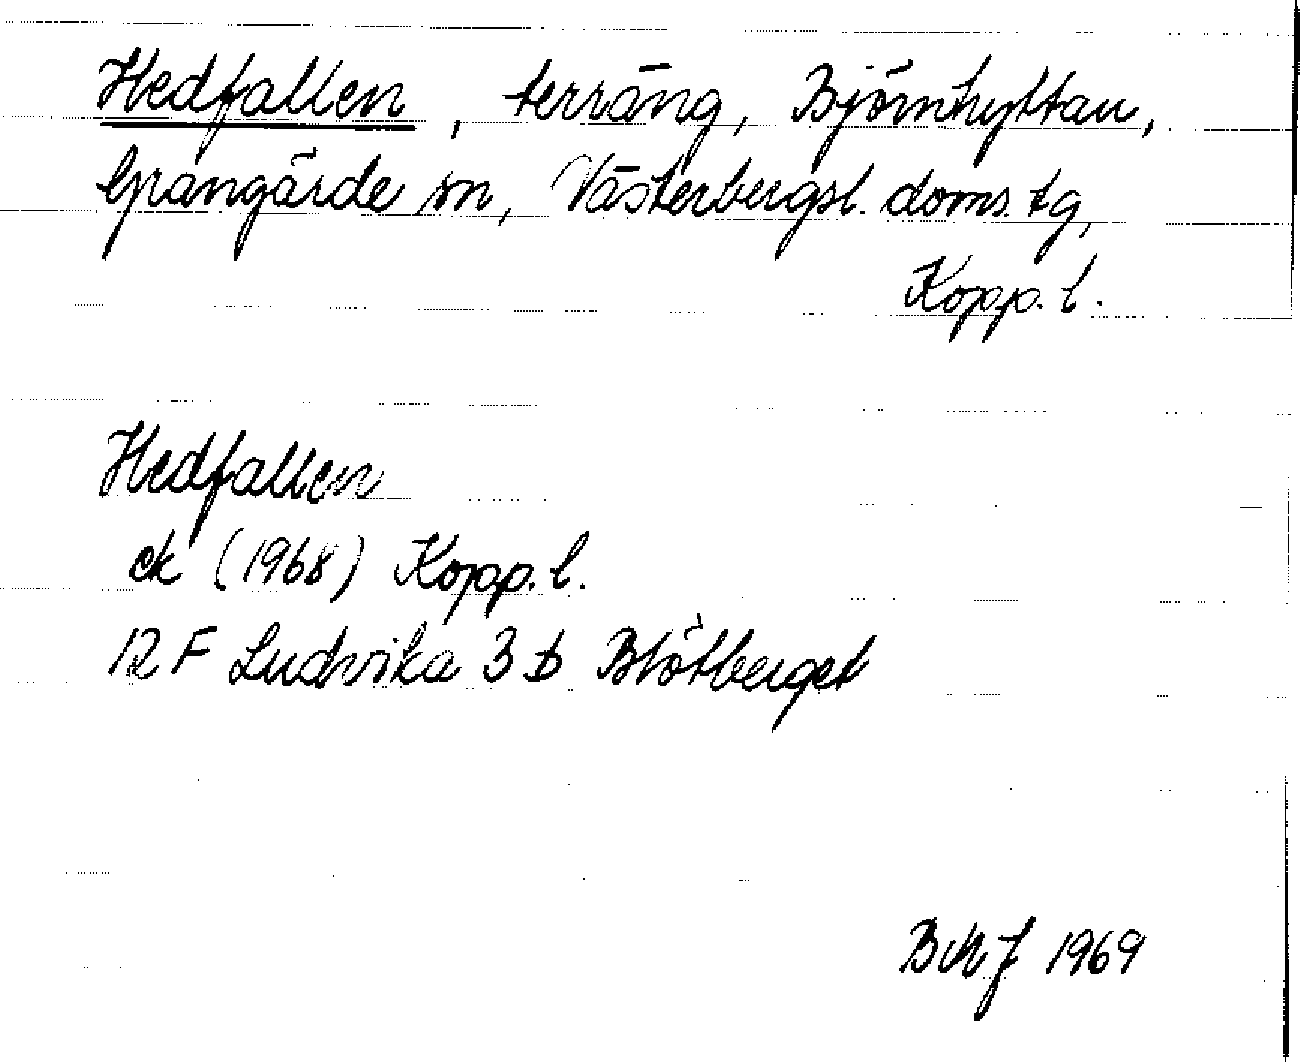 Hedfallen, terräng, Björnhyttan,
Grangärde sn, Västerbergsl. doms. tg,
Kopp. l.
Hedfallen
ek (1968) Kopp. l.
12 F Ludvika 3 b Blötberget
1969